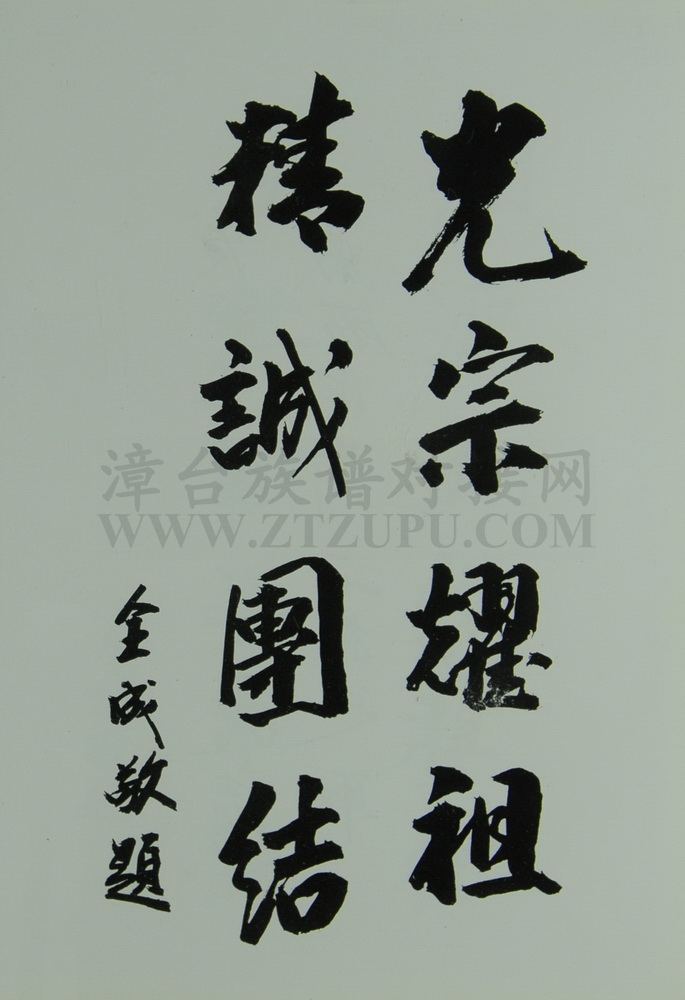 光宗耀祖
精誠團結
金成敬題
漳台族谱对接网
WWW.ZTZUPU.COM